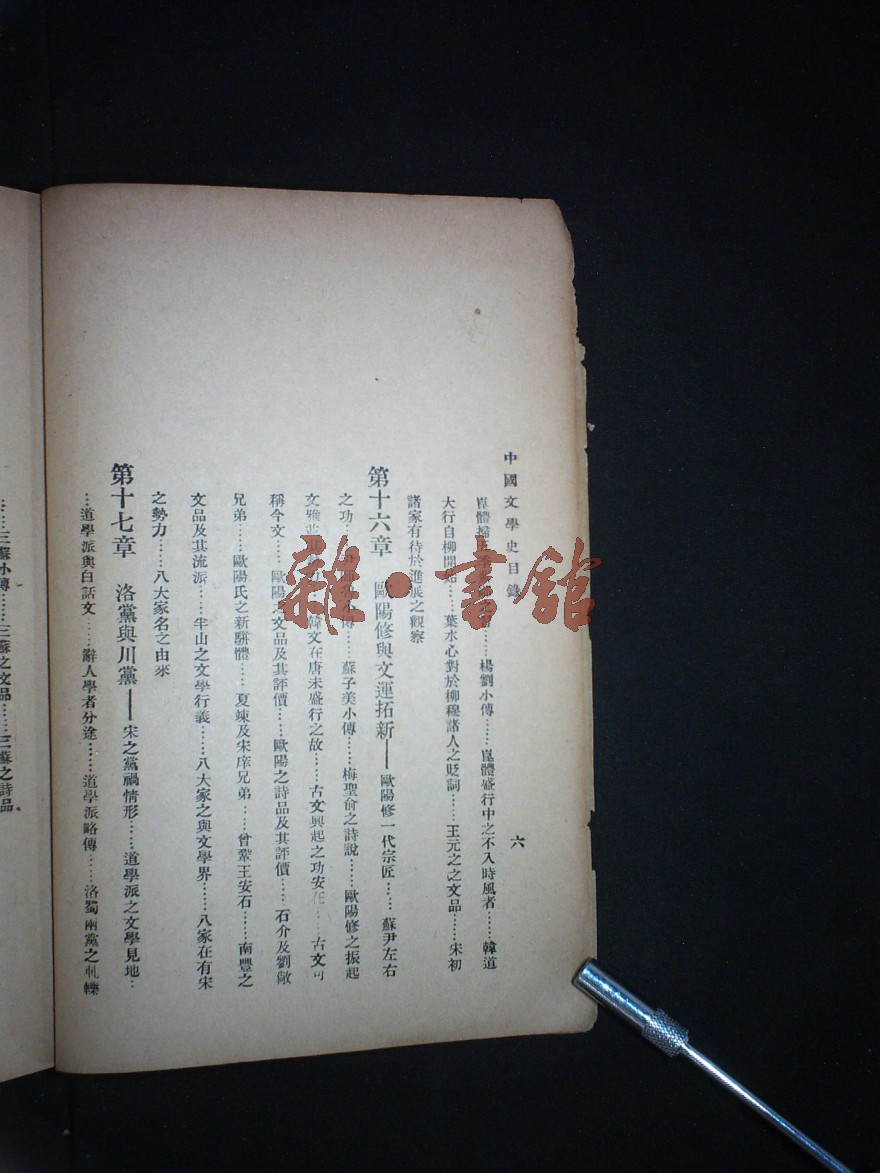 中國文學史目錄
六
崑體
楊劉小傳……崑體盛行中之不入時風者……韓道
大行自柳開始……葉水心對於柳穆諸人之貶詞……王元之之文品……宋初
諸家有待於進展之觀察
第十六章 歐陽修與文運拓新——歐陽修一代宗匠……蘇尹左右
之功……小傳……蘇子美小傳……梅聖俞之詩說……歐陽修之振起
文雅
韓文在唐未盛行之故……古文興起之功安在……古文可
稱今文……歐陽之文品及其評價……歐陽之詩品及其評價……石介及劉敞
兄弟……歐陽氏之新駢體……夏竦及宋庠兄弟……曾鞏王安石……南豐之
文品及其流派……半山之文學行義……八大家之與文學界……八家在有宋
之勢力……八大家名之由來
第十七章 洛黨與川黨——宋之黨禍情形……道學派之文學見地…
…道學派與白話文……辭人學者分途……道學派略傳……洛蜀兩黨之軋轢
三蘇小傳……三蘇之文品……三蘇之詩品。
雜·書館